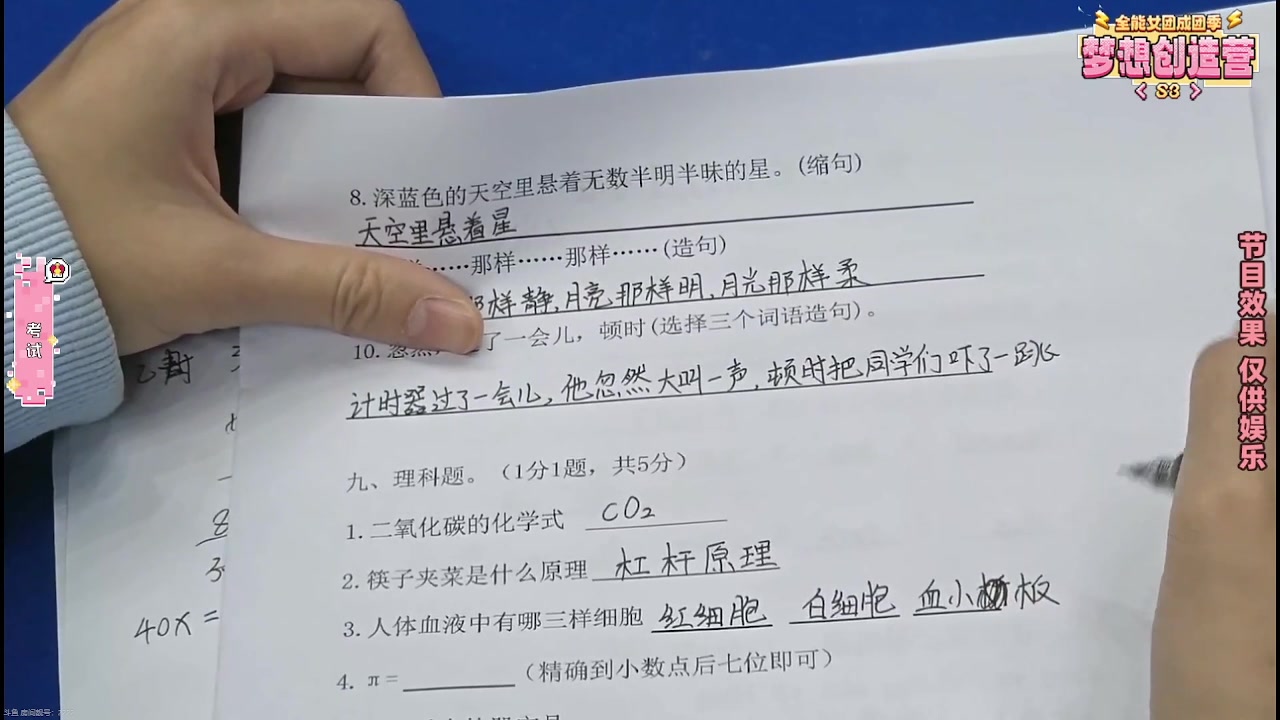 全能女团成团季
梦想创造营
S3
8. 深蓝色的天空里悬着无数半明半昧的星。(缩句)
天空里悬着星
……那样……那样……(造句)
那样静,月亮那样明,月光那样柔
10. 忽然,了一会儿,顿时(选择三个词语造句)。
计时器过了一会儿,他忽然大叫一声,顿时把同学们吓了一跳
九、理科题。(1分1题,共5分)
1. 二氧化碳的化学式 CO₂
2. 筷子夹菜是什么原理 杠杆原理
3. 人体血液中有哪三样细胞 红细胞 白细胞 血小板
4. π= (精确到小数点后七位即可)
40X=
考试
节目效果 仅供娱乐